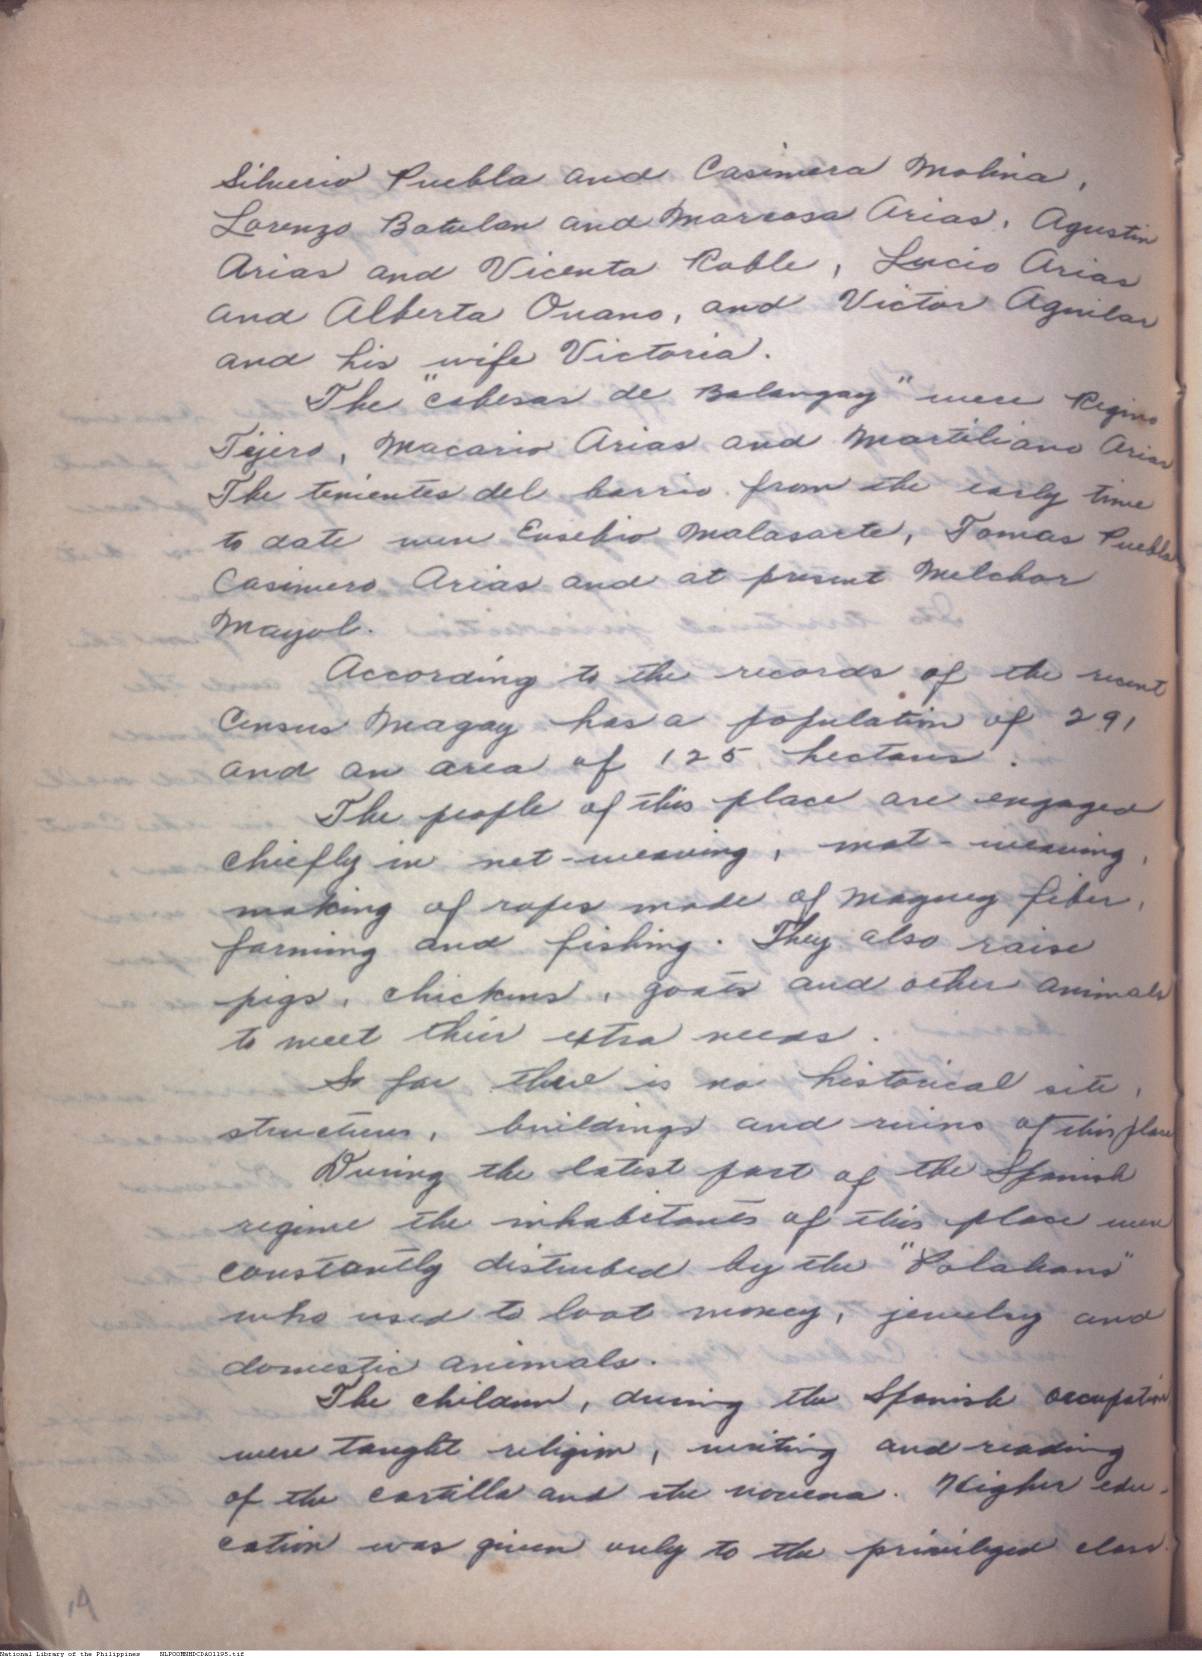 Silverio Puebla and Casimera Molina,
Lorenzo Batulan and Marcosa Arias, Agustin
Arias and Vicenta Roble, Lucio Arias
and Alberta Ouano, and Victor Aguilar
and his wife Victoria.
The "cabesas de Balangay" were Regino
Tejero, Macario Arias and Martiliano Arias
The tenientes del barrio from the early time
to date were Eusebio Malasarte, Tomas Puebla
Casimero Arias and at present Melchor
Mayol.
According to the records of the recent
Census Magay has a population of 291
and an area of 125 hectares.
The people of this place are engaged
chiefly in net-weaving, mat-weaving,
making of ropes made of maguey fiber,
farming and fishing. They also raise
pigs, chickens, goats and other animals
to meet their extra needs.
So far there is no historical site,
structures, buildings and ruins of this place
During the latest part of the Spanish
regime the inhabitants of this place were
constantly disturbed by the "Polahans"
who used to loot money, jewelry and
domestic animals.
The children, during the Spanish occupation
were taught religion, writing and reading
of the cartilla and the novena. Higher edu-
cation was given only to the privileged class.
19
National Library of the Philippines NLPOOMNHDCDA01195.tif